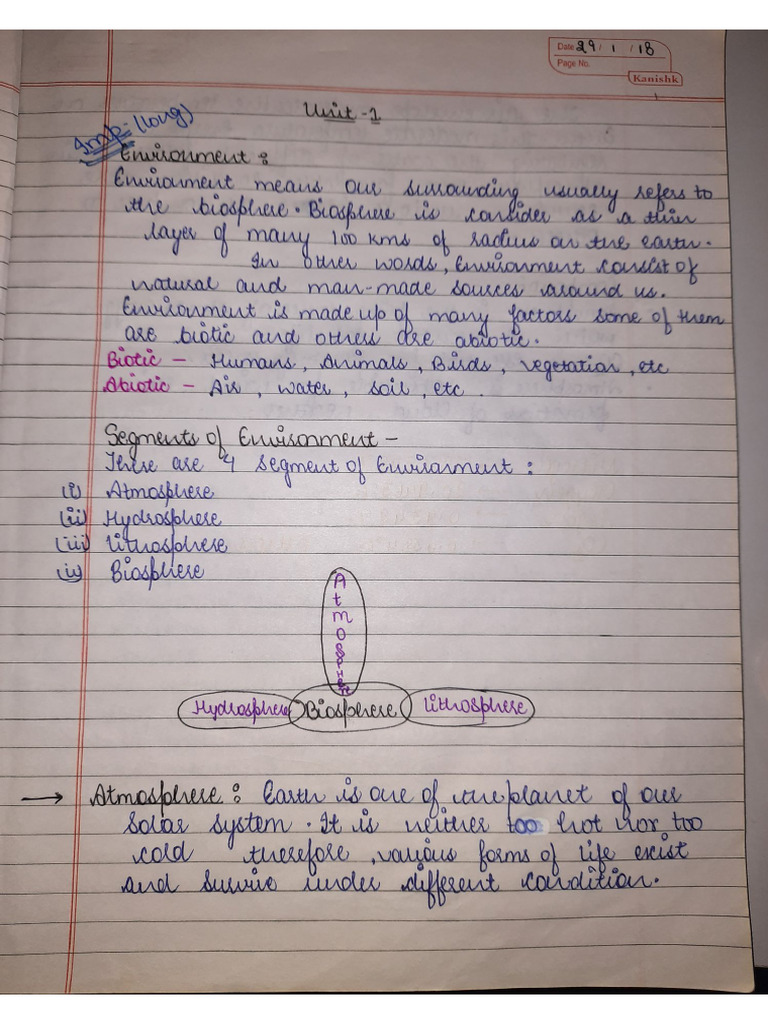 Date 29/1/18
Page No.
Kanishk
Unit-1
Imp. (long)
Environment :
Environment means our surrounding usually refers to
the biosphere. Biosphere is consider as a thin
layer of many 100 kms of radius on the earth.
In other words, Environment consist of
natural and man-made sources around us.
Environment is made up of many factors some of them
are biotic and others are abiotic.
Biotic - Humans, Animals, Birds, vegetation, etc
Abiotic - Air, water, soil, etc.
Segments of Environment -
There are 4 segment of Enviornment :
(i) Atmosphere
(ii) Hydrosphere
(iii) Lithosphere
(iv) Biosphere
Atmosphere
Hydrosphere Biosphere Lithosphere
→ Atmosphere : Earth is one of the planet of our
solar system. It is neither too hot nor too
cold therefore, various forms of life exist
and survive under different condition.